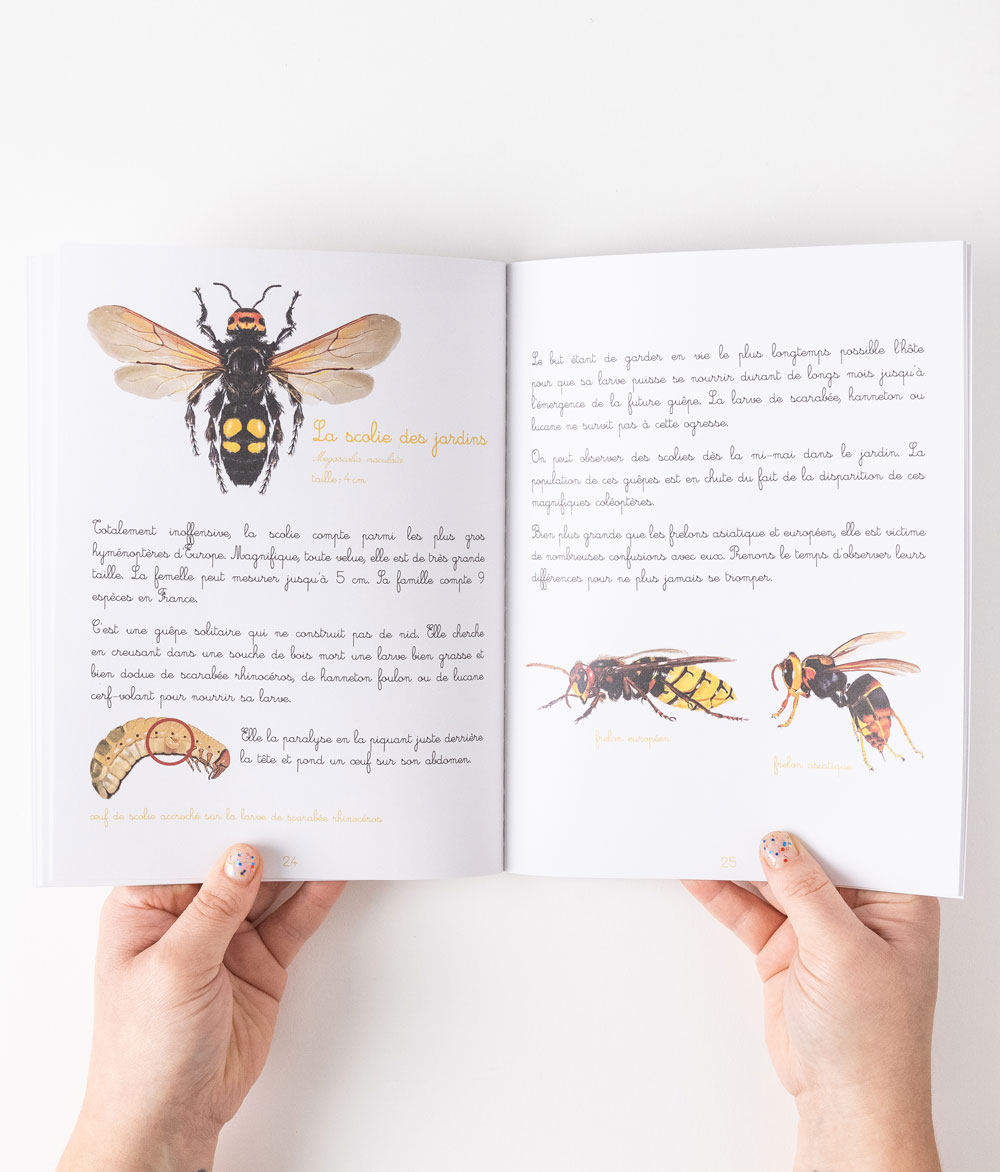 La scolie des jardins
Megascolia maculata
taille : 4 cm
Totalement inoffensive, la scolie compte parmi les plus gros
hyménoptères d'Europe. Magnifique, toute velue, elle est de très grande
taille. La femelle peut mesurer jusqu'à 5 cm. Sa famille compte 9
espèces en France.
C'est une guêpe solitaire qui ne construit pas de nid. Elle cherche
en creusant dans une souche de bois mort une larve bien grasse et
bien dodue de scarabée rhinocéros, de hanneton foulon ou de lucane
cerf-volant pour nourrir sa larve.
Elle la paralyse en la piquant juste derrière
la tête et pond un œuf sur son abdomen.
œuf de scolie accroché sur la larve de scarabée rhinocéros
24
Le but étant de garder en vie le plus longtemps possible l'hôte
pour que sa larve puisse se nourrir durant de longs mois jusqu'à
l'émergence de la future guêpe. La larve de scarabée, hanneton ou
lucane ne survit pas à cette ogresse.
On peut observer des scolies dès la mi-mai dans le jardin. La
population de ces guêpes est en chute du fait de la disparition de ces
magnifiques coléoptères.
Bien plus grande que les frelons asiatique et européen, elle est victime
de nombreuses confusions avec eux. Prenons le temps d'observer leurs
différences pour ne plus jamais se tromper.
frelon européen
frelon asiatique
25